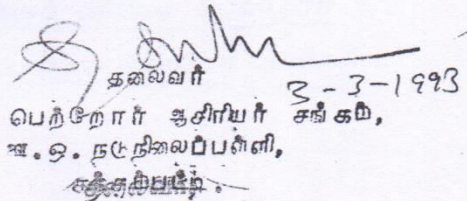 தலைவர்
3-3-1993
பெற்றோர் ஆசிரியர் சங்கம்,
ஊ.ஒ. நடுநிலைப்பள்ளி,